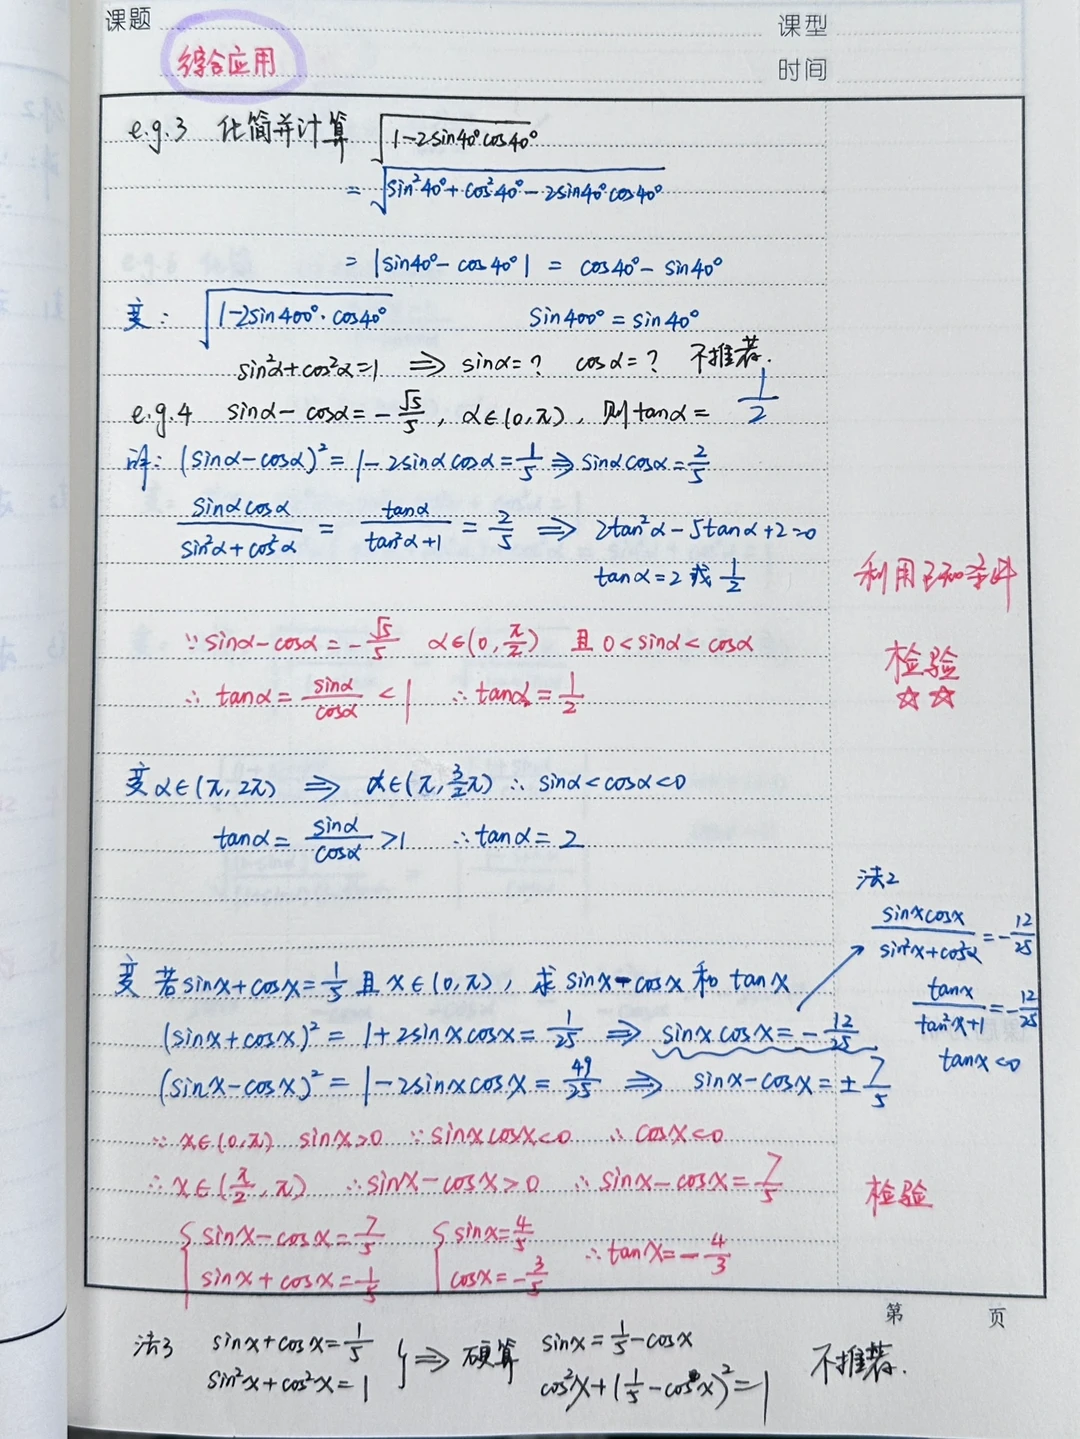 课题
课型
综合应用
时间
e.g.3 化简并计算 √(1-2sin40°cos40°)
= √(sin²40°+cos²40°-2sin40°cos40°)
= |sin40°-cos40°| = cos40°-sin40°
变: √(1-2sin400°·cos40°) sin400°=sin40°
sin²α+cos²α=1 ⇒ sinα=? cosα=? 不推荐.
e.g.4 sinα-cosα=-√5/5, α∈(0,π), 则tanα= 1/2
详: (sinα-cosα)²=1-2sinαcosα=1/5⇒sinαcosα=2/5
sinαcosα/(sin²α+cos²α) = tanα/(tan²α+1) = 2/5 ⇒ 2tan²α-5tanα+2=0
tanα=2或1/2
利用已知条件
∵sinα-cosα=-√5/5 α∈(0,π/2) 且0<sinα<cosα
检验
☆☆
∴tanα=sinα/cosα<1 ∴tanα=1/2
变α∈(π,2π) ⇒ α∈(π,3/2π) ∴ sinα<cosα<0
tanα=sinα/cosα>1 ∴tanα=2
变 若sinx+cosx=1/5且x∈(0,π), 求sinx-cosx和tanx
(sinx+cosx)²=1+2sinxcosx=1/25 ⇒ sinxcosx=-12/25
(sinx-cosx)²=1-2sinxcosx=49/25 ⇒ sinx-cosx=±7/5
法2
sinxcosx/(sin²x+cos²α)=-12/25
tanx/(tan²x+1)=-12/25
tanx<0
∵x∈(0,π) sinx>0 ∵sinxcosx<0 ∴cosx<0
∴x∈(π/2,π) ∴sinx-cosx>0 ∴sinx-cosx=7/5
检验
{sinx-cosx=7/5 {sinx=4/5 ∴tanx=-4/3
sinx+cosx=1/5 cosx=-3/5
第 页
法3 sinx+cosx=1/5 }⇒硬算 sinx=1/5-cosx 不推荐.
sin²x+cos²x=1 cos²x+(1/5-cosx)²=1